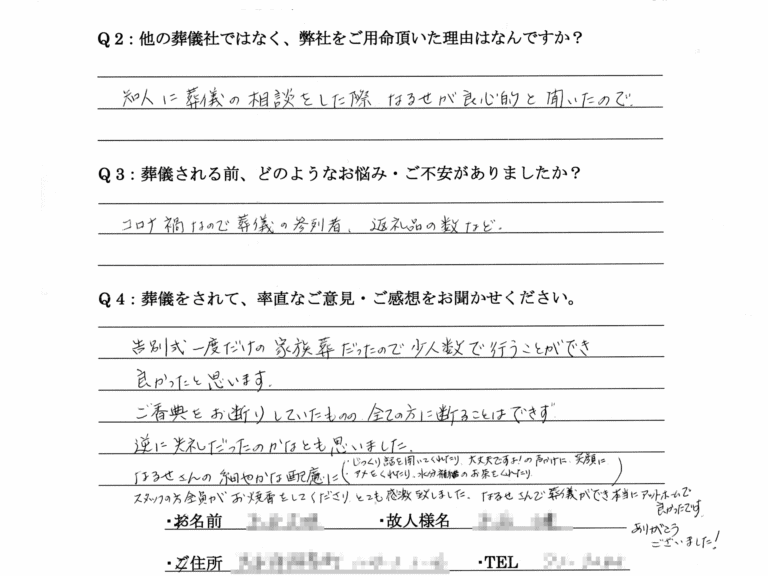 Q2：他の葬儀社ではなく、弊社をご用命頂いた理由はなんですか？
知人に葬儀の相談をした際 なるせが良心的と聞いたので。
Q3：葬儀される前、どのようなお悩み・ご不安がありましたか？
コロナ禍なので葬儀の参列者、返礼品の数など。
Q4：葬儀をされて、率直なご意見・ご感想をお聞かせください。
告別式一度だけの家族葬だったので少人数で行うことができ
良かったと思います。
ご香典をお断りしていたものの 全ての方に断ることはできず
逆に失礼だったのかなとも思いました。
なるせさんの細やかな配慮に
(じっくり話を聞いてくれたり、大丈夫ですよ!の声かけに、笑顔に
アメをくれたり、水分補給のお茶をくれたり)
スタッフの方全員がお焼香をしてくださりとても感激致しました。なるせさんで葬儀ができ本当にアットホームで
良かったです。
ありがとう
ございました!
・お名前 ・故人様名
・ご住所 ・TEL